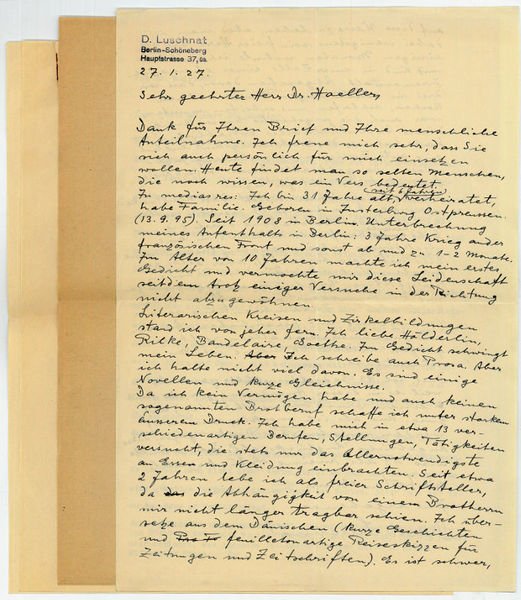 D. Luschnat
Berlin-Schöneberg
Hauptstrasse 37, 
27.1.27.
Sehr geehrter Herr Dr.
Dank für Ihren Brief und Ihre menschliche
Anteilnahme. Ich freue mich sehr, dass Sie
sich auch persönlich für mich einsetzen
wollen. Heute findet man so selten Menschen,
die noch wissen, was ein Vers bedeutet.
seit 6 Jahren
In medias res: Ich bin 31 Jahre alt, verheiratet,
habe Familie. Geboren in Insterburg Ostpreussen.
(13.9.95) Seit 1908 in Berlin. Unterbrechung
meines Aufenthalts in Berlin: 3 Jahre Krieg an der
französischen Front und sonst ab und zu 1-2 Monate.
Im Alter von 10 Jahren machte ich mein erstes
Gedicht und vermochte mir diese Leidenschaft
seitdem trotz einiger Versuche in der Richtung
nicht abzugewöhnen.
Literarischen Kreisen und Zirkelbildungen
stand ich von jeher fern. Ich liebe Hölderlin,
Rilke, Baudelaire, Goethe. Im Gedicht schwingt
mein Leben. Aber Ich schreibe auch Prosa. Aber
ich halte nicht viel davon. Es sind einige
Novellen und kurze Gleichnisse.
Da ich kein Vermögen habe und auch keinen
sogenannten Brotberuf schaffe ich unter starkem
äusserem Druck. Ich habe mich in etwa 13 ver-
schiedenartigen Berufen, Stellungen, Tätigkeiten
versucht, die stets nur das Allernotwendigste
an Essen und Kleidung einbrachten. Seit etwa
2 Jahren lebe ich als freier Schriftsteller,
da das die Abhängigkeit von einem Brotherrn
mir nicht länger tragbar schien. Ich über-
setze aus dem Dänischen (kurze Geschichten
und feuilletonartige Reiseskizzen für
Zeitungen und Zeitschriften). Es ist schwer,